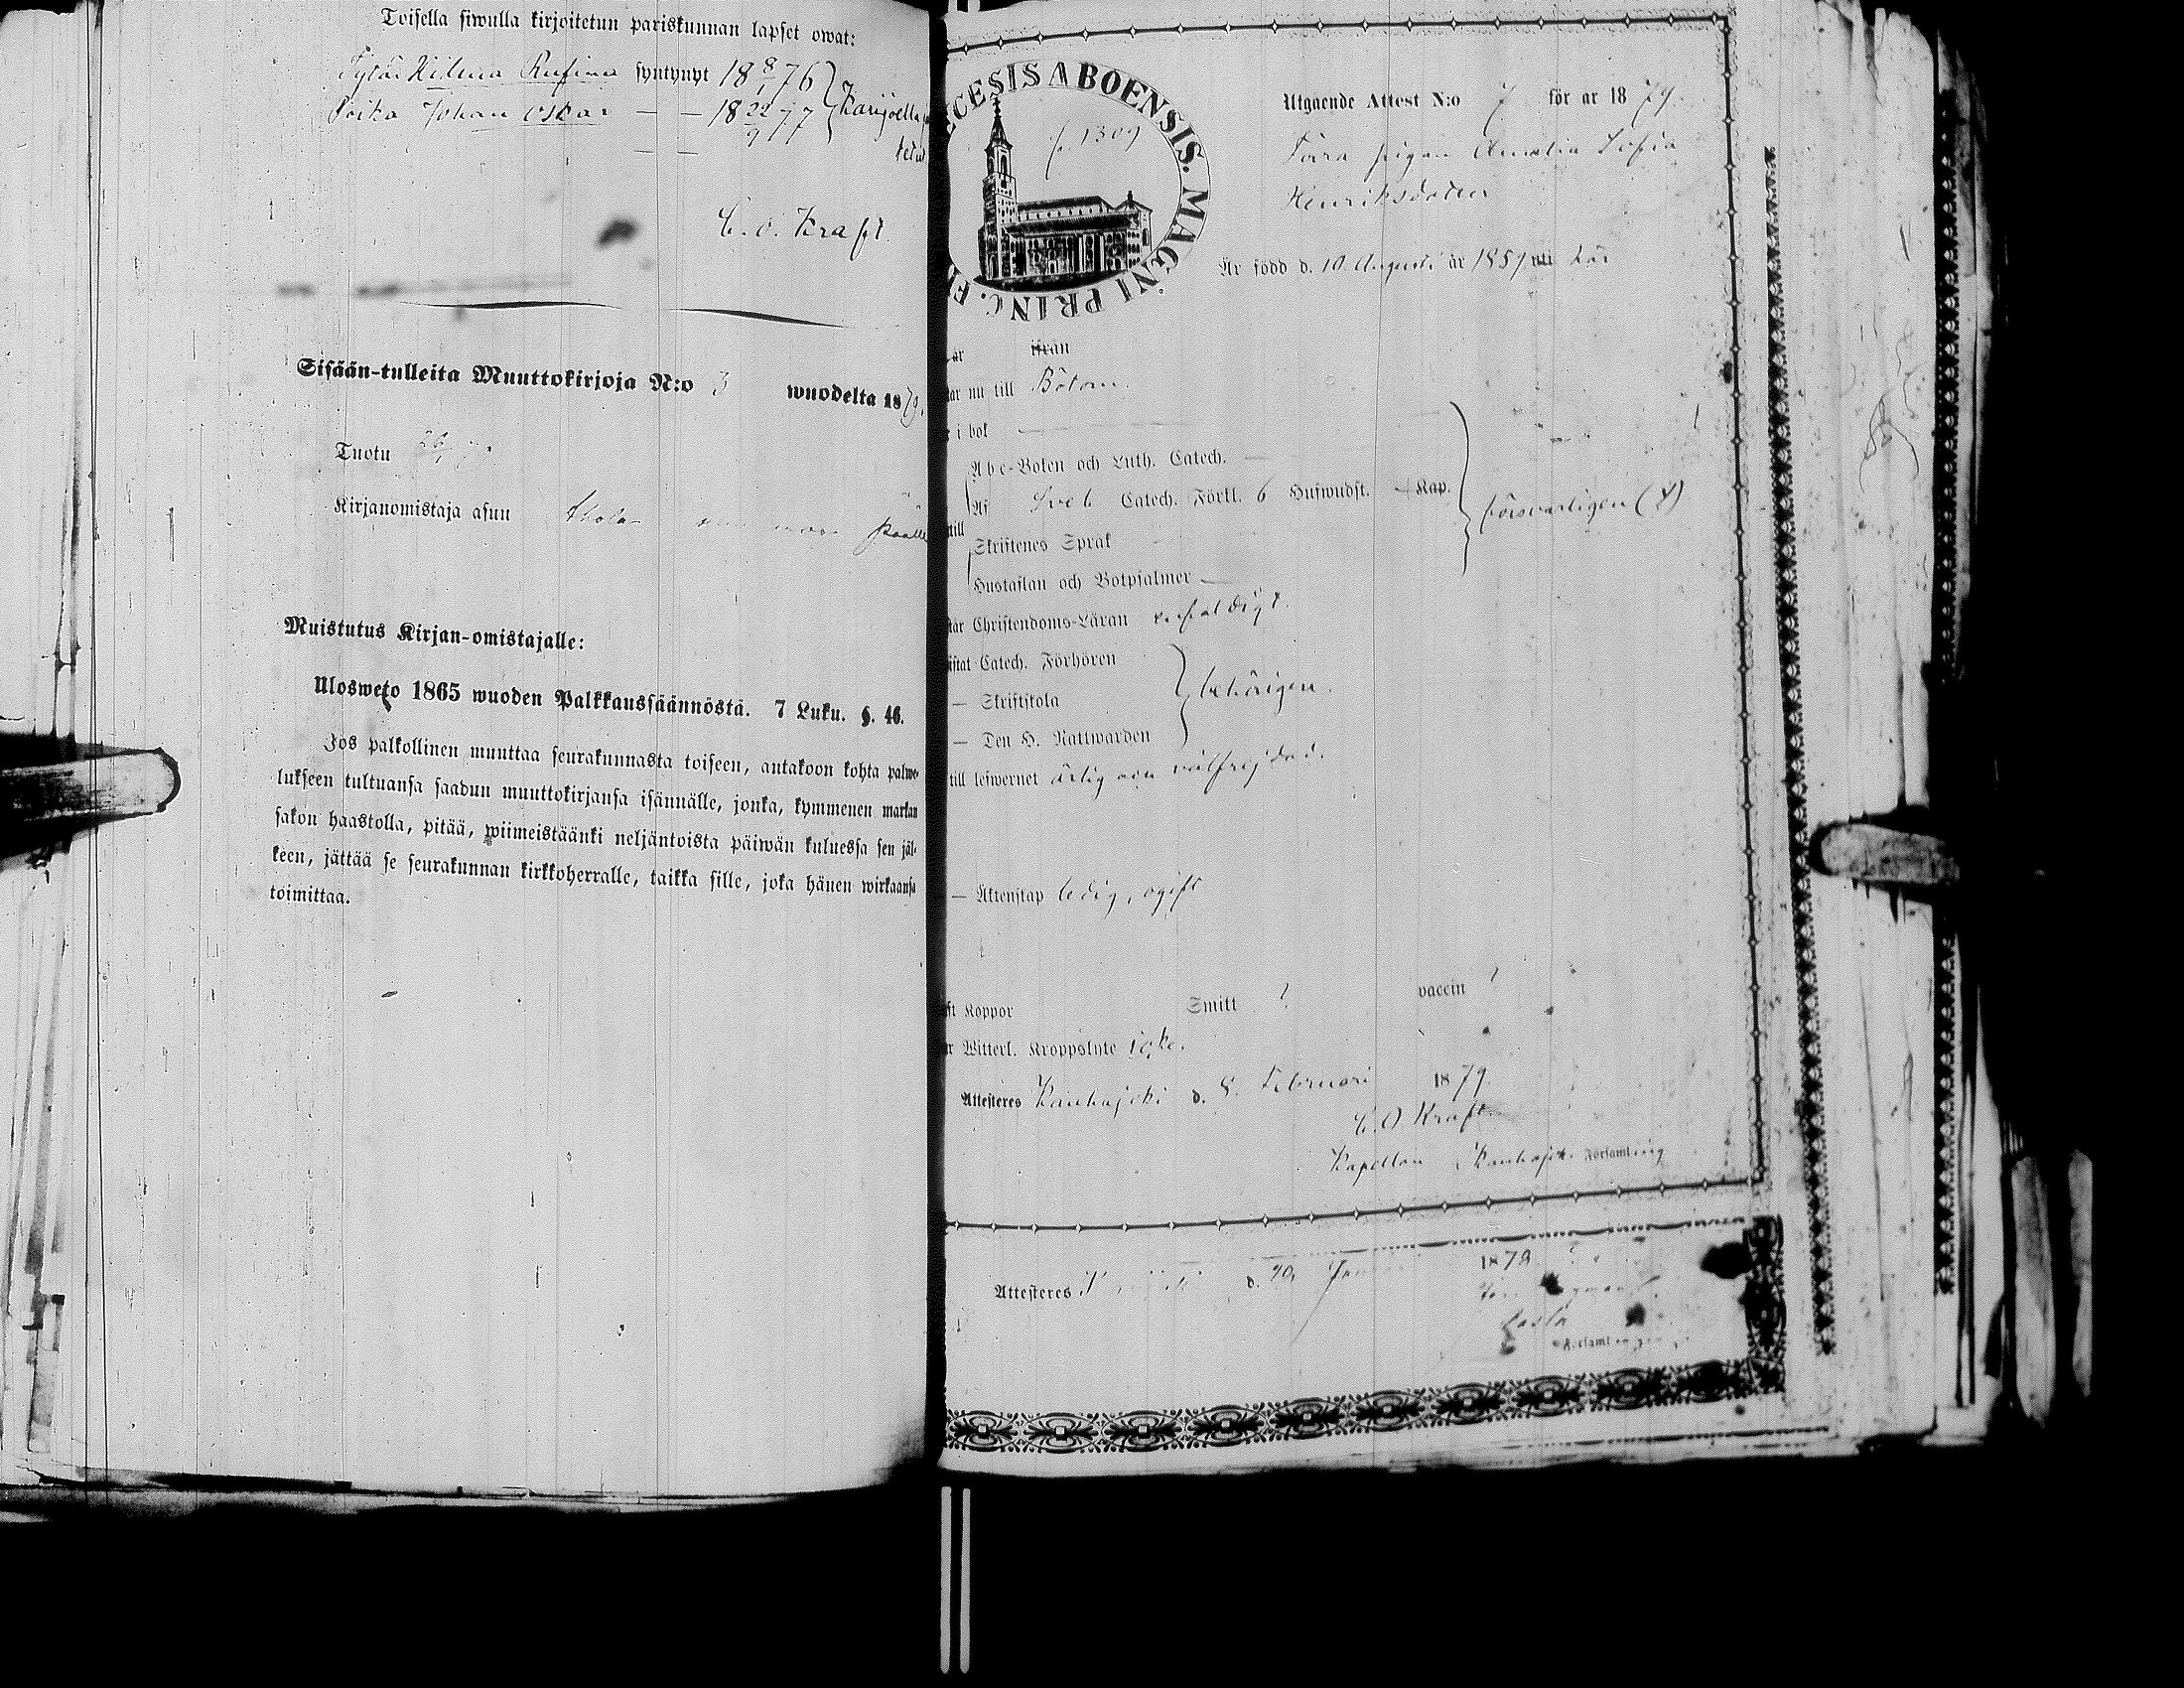 Toisella siwulla kirjoitetun pariskunnan lapset owat:
Tytär Hilma Rufina syntynyt 18 8/1 76
Poika Johan Oskar — — 18 22/9 77
Karijoella
C. O. Kraft.
Sisään-tulleita Muuttokirjoja N:o 3 wuodelta 1879.
Tuotu
Kirjanomistaja asuu
Muistutus Kirjan-omistajalle:
Ulosweto 1865 wuoden Palkkaussäännöstä. 7 Luku. §. 46.
Jos palkollinen muuttaa seurakunnasta toiseen, antakoon kohta palwe-
lukseen tultuansa saadun muuttokirjansa isännälle, jonka, kymmenen markan
sakon haastolla, pitää, wiimeistäänki neljäntoista päiwän kuluessa sen jäl-
keen, jättää se seurakunnan kirkkoherralle, taikka sille, joka hänen wirkaansa
toimittaa.
ECESIS ABOENSIS. MAGNI PRINC. F
p. 1309
Utgaende Attest N:o 7 för ar 1879.
Förra pigan Amalia Sofia
Henriksdotter
Är född d. 10 Augusti år 1859 uti här
ar ifrån
ar nu till Bötom.
i bok —
Abc-Boken och Luth. Catech. —
Af Sveb Catech. Förkl. 6 Hufwudst. Kap.
försvarligen (4)
till
Skriftenes Språk
Hustaflan och Botpsalmer —
tår Christendoms-Läran enfaldigt.
istat Catech. Förhören
— Skriftskola
behörigen.
— Den H. Nattwarden
till lefwernet ärlig och välfrejdad.
— Äktenskap ledig, ogift
ft Koppor Smitt 1 vaccin 1
r Witterl. Kroppslyte icke.
Attesteres Kauhajoki d. 8. Februari 1879.
C. O. Kraft
Kapellan i Kauhajoki Församling
Attesteres d. 1879
Församlingen